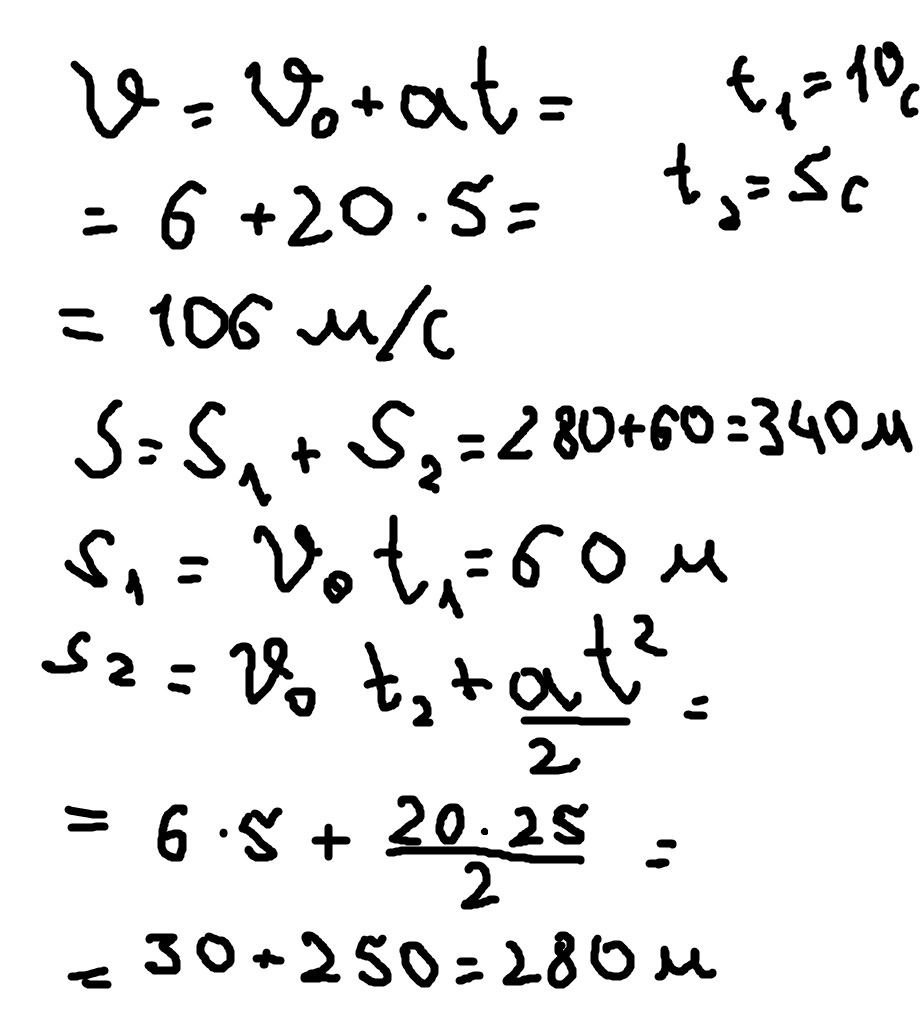 v = v₀ + at =
t₁ = 10 с
= 6 + 20 · 5 =
t₂ = 5 с
= 106 м/с
S = S₁ + S₂ = 280 + 60 = 340 м
S₁ = v₀ t₁ = 60 м
S₂ = v₀ t₂ + at²/2 =
= 6 · 5 + 20 · 25/2 =
= 30 + 250 = 280 м